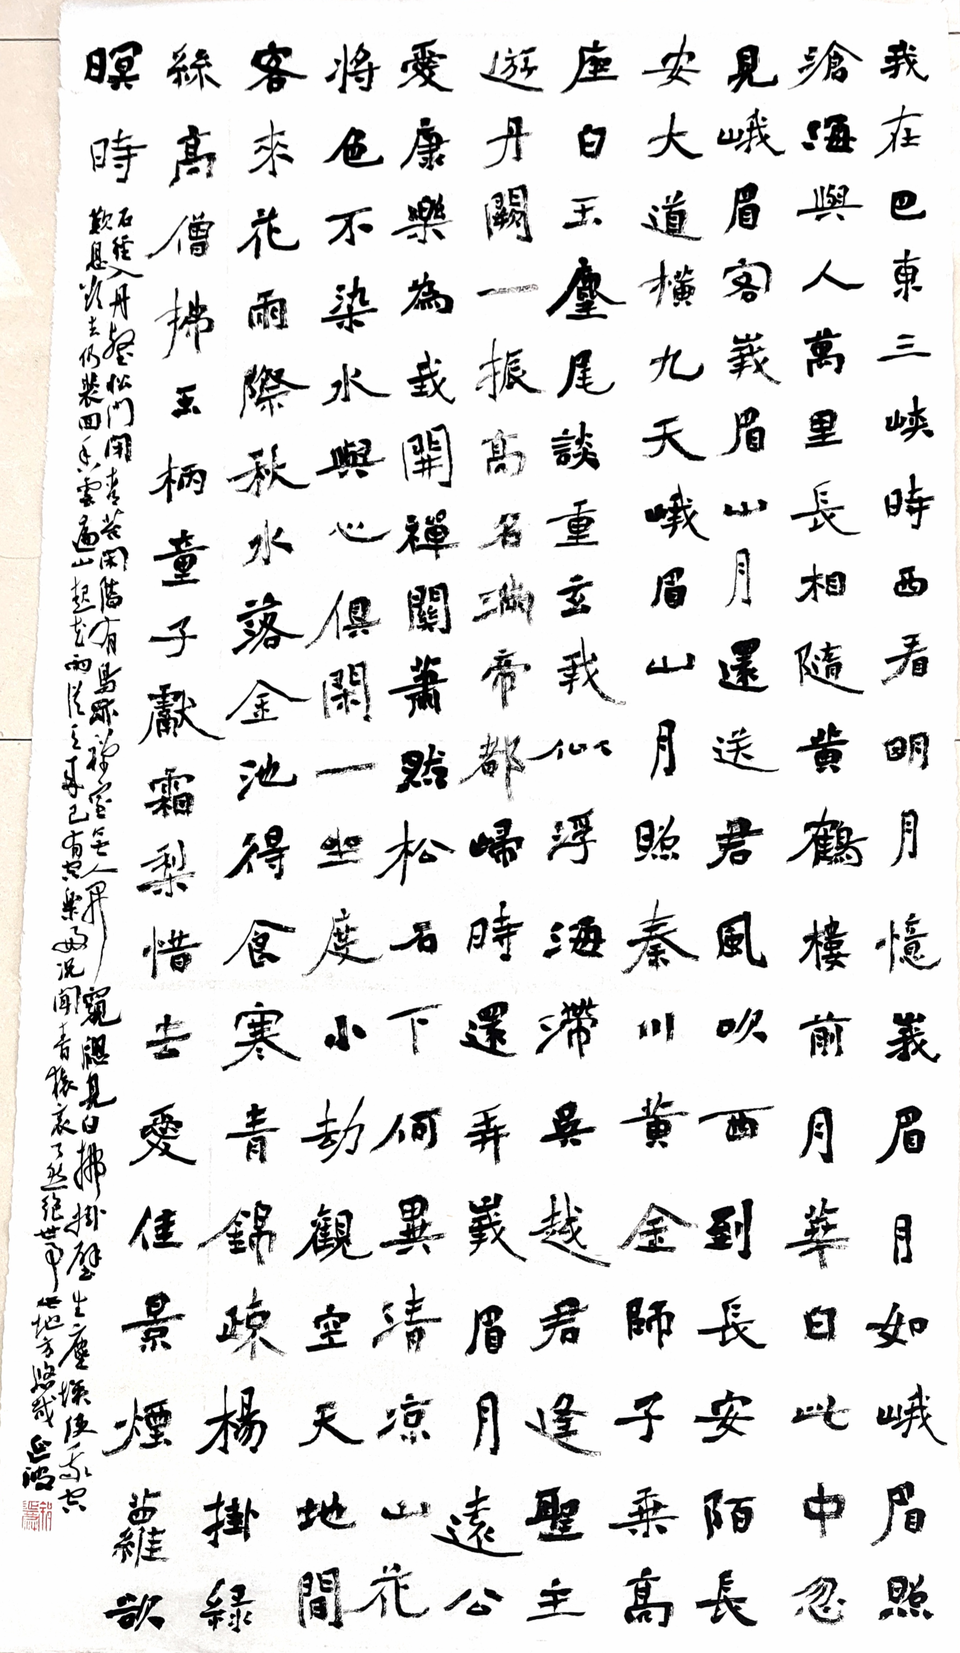 我在巴東三峽時西看明月憶峩眉月如峨眉照
滄海與人萬里長相隨黃鶴樓前月華白此中忽
見峨眉客峩眉山月還送君風吹西到長安陌長
安大道橫九天峨眉山月照秦川黃金師子乘高
座白玉麈尾談重玄我似浮海滯吳越君逢聖主
遊丹闕一振高名滿帝都歸時還弄峩眉月遠公
愛康樂為我開禪關蕭然松石下何異清凉山花
將色不染水與心俱閑一坐度小劫觀空天地間
客來花雨際秋水落金池得食寒青錦疎楊掛綠
絲高僧拂玉柄童子獻霜梨惜去愛佳景煙蘿欲
暝時
石徑入丹壑松門閉青苔閑階有鳥跡禪室無人開窺窗見白拂掛壁生塵埃使我空
歎息欲去仍裴回香雲遍山起花雨從天來已有空樂好況聞青猿哀了然絕世事此地方悠哉